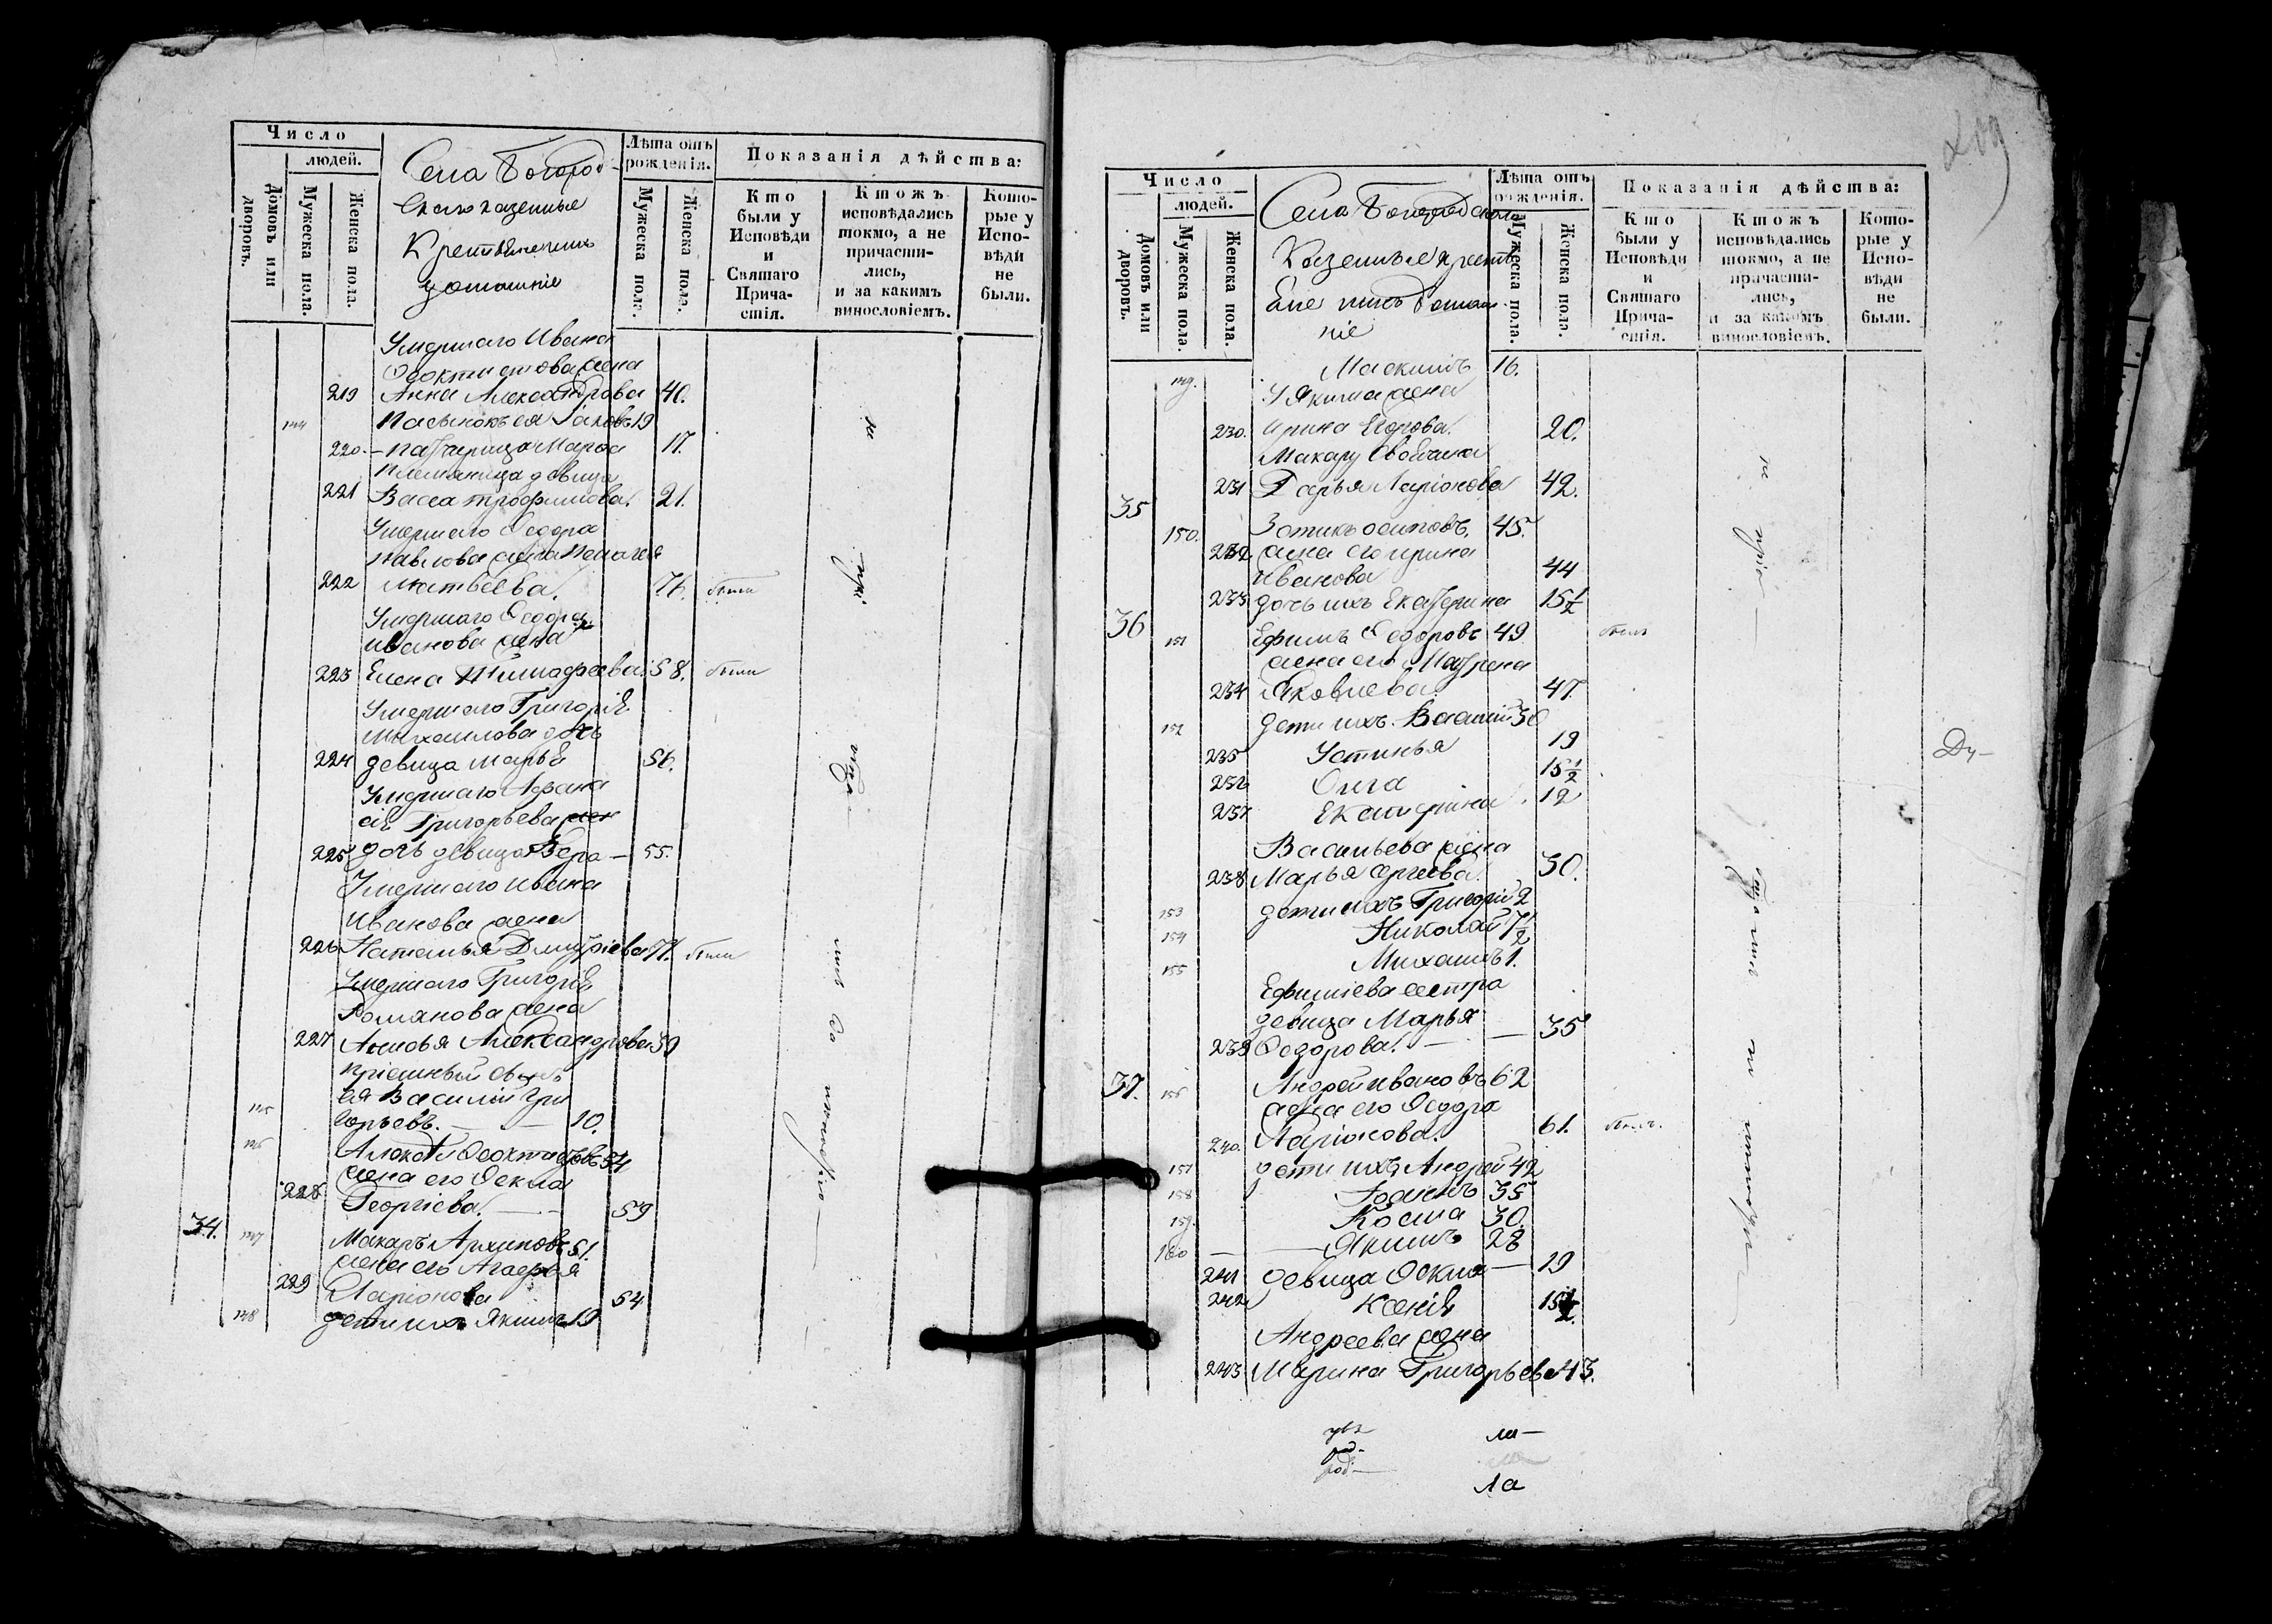 Число
людей.
Домовъ или дворовъ.
Мужеска пола.
Женска пола.
Села Богород
скаго казенные
Крестьяне ихъ
домашніе
Лѣта отъ рожденія.
Мужеска пола.
Женска пола.
Показанія дѣйства:
Кто были у Исповѣди и Святаго Причастія.
Ктожъ исповѣдались токмо, а не причастились, и за какимъ винословіемъ.
Которые у Исповѣди не были.
Умершаго Ивана
Феоктистова жена
219 Анна Александрова 40.
144 Пасынокъ ея Іаковъ 19
220. – падчерица Марѳа 17.
племяница девица
221 Васса Трофимова. 21.
Умершаго Ѳеодора
Павлова жена Пелагея
222 Матвеева. 76. были
Умершаго Ѳеодора
Иванова жена
223 Елена Тимофеева 58. были
Умершаго Григорія
Михайлова дочь
224 девица Марья 56.
Умершаго Афана
сія Григорьева
225 дочь девица Вера — 55.
Умершаго Ивана
Иванова жена
226 Наталья Дмитріева 71. были
Умершаго Григорія
Романова жена
227 Александрова 59
пріемный сынъ
ея Василий Гри
145 горьевъ. — 10.
146 Алексей Феоктистовъ 54
жена его Фекла
228 Георгіева. — 59
34. 147 Макаръ Архиповъ 51.
жена его Агафья
229 Ларіонова 54
148 дети ихъ Якимъ 19
Число
людей.
Домовъ или дворовъ.
Мужеска пола.
Женска пола.
Села Богородскаго
Казенные крестья
не ихъ домаш
ніе
Лѣта отъ рожденія.
Мужеска пола.
Женска пола.
Показанія дѣйства:
Кто были у Исповѣди и Святаго Причастія.
Ктожъ исповѣдались токмо, а не причастились, и за какимъ винословіемъ.
Которые у Исповѣди не были.
149. Максимъ 16.
У Якима жена
230. Ирина Егорова. 20.
Макару
231 Дарья Ларіонова 42.
35
150. Зотикъ Осиповъ 45.
232 жена его Ирина
Иванова 44
233 дочь ихъ Екатерина 15 1/2
36
151 Ефимъ Ѳедоровъ 49 былъ
жена его Матрена
234 Яковлева 47.
152 дети ихъ Василий 30
235 Устинья 19
236 Олга 15 1/2
237 Екатерина 12
Васильева жена
238 Марья Сергеева 30.
153 дети ихъ Григорій 2
154 Николай 7 1/2
155 Михаилъ 1.
Ефимиева сестра
девица Марья
239 Ѳедорова. — 35
37. 156 Андрей Ивановъ 62
жена его Ѳеодора
240. Ларіонова. 61.
157 дети ихъ Андрей 42
158 35
159. Косма 30.
160 — Якимъ 28
241 девица Фекла — 19
242 Ксенія 15 1/2
Андреева жена
243 Марина Григорьева 43.
ла